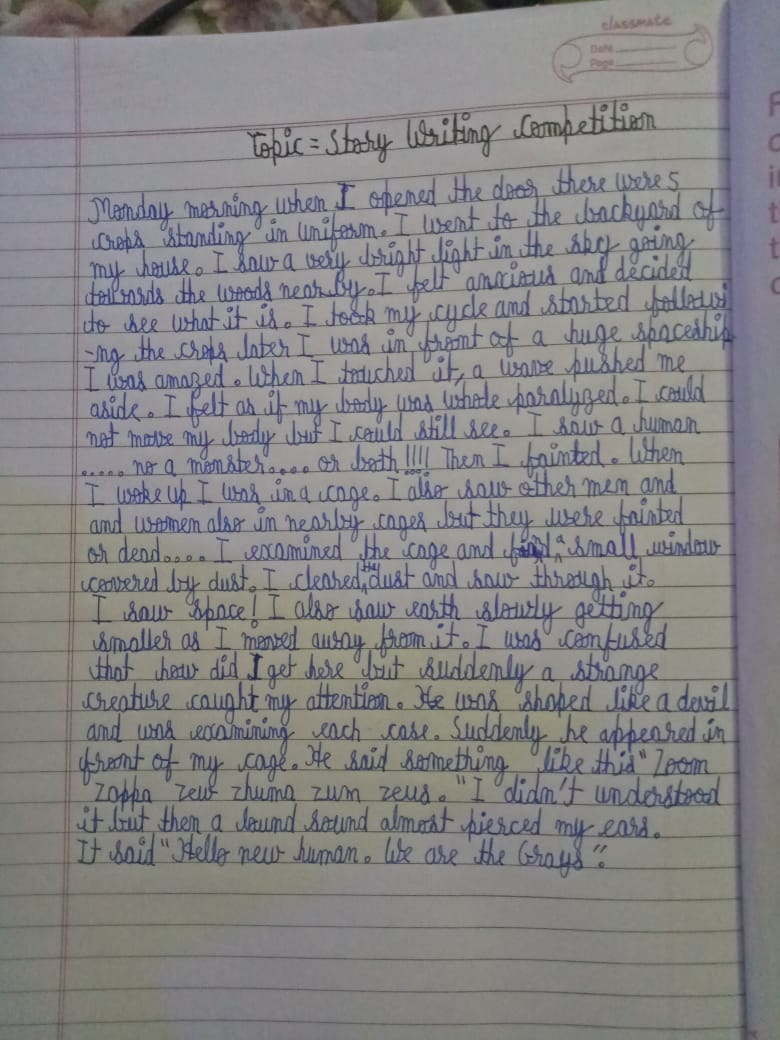 classmate
Date
Page
Topic = Story Writing Competition
Monday morning when I opened the door there were 5
crops standing in uniform. I went to the backyard of
my house. I saw a very bright light in the sky going
towards the woods nearby. I felt anxious and decided
to see what it is. I took my cycle and started followi
-ng the crops later I was in front of a huge spaceship
I was amazed. When I touched it, a wave pushed me
aside. I felt as if my body was whole paralyzed. I could
not move my body but I could still see. I saw a human
..... no a monster.... or both !!!! Then I fainted. When
I woke up I was in a cage. I also saw other men and
and women also in nearby cages but they were fainted
or dead.... I examined the cage and a small window
covered by dust. I cleared the dust and saw through it.
I saw space! I also saw earth slowly getting
smaller as I moved away from it. I was confused
that how did I get here but suddenly a strange
creature caught my attention. He was shaped like a devil
and was examining each case. Suddenly he appeared in
front of my cage. He said something like this "Zoom
zappa zew zhuma zum zeus. "I didn't understood
it but then a lound sound almost pierced my ears.
It said "Hello new human. We are the Grays".